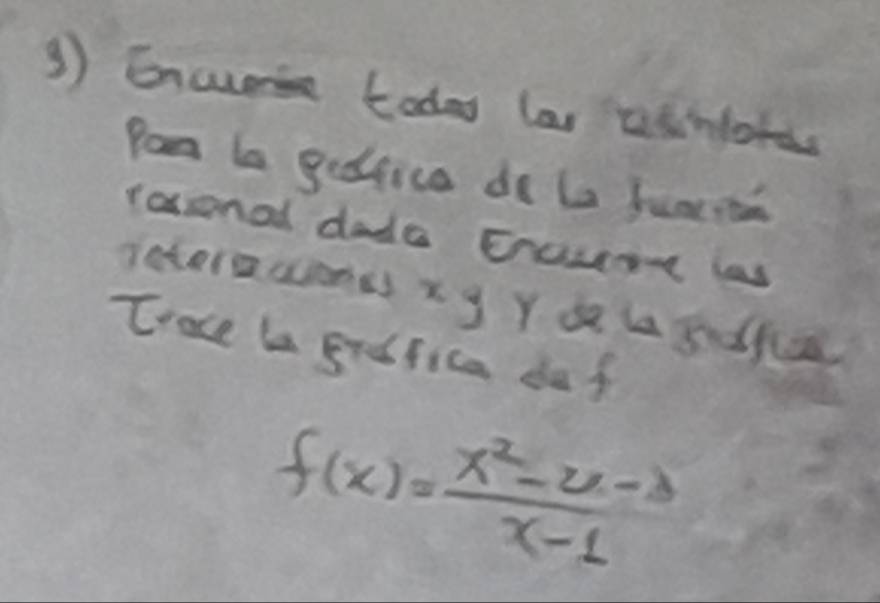 Encuentre todas las asíntotas
Para la gráfica de la función
racional dada Encuentre las
intersecciones x y y de la gráfica
Trace la gráfica de f
f(x)=
x²-
x-1